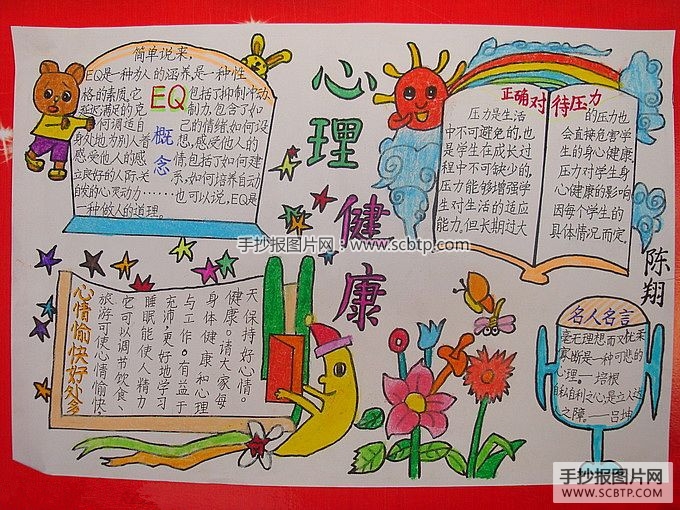 心理健康
简单说来,
EQ是一种为人的涵养,是一种性
格的素质。它
延迟满足的克
何调适自
身处地为别人着
感受他人的感
立良好的人际关
自发的心灵动力
一种做人的道理。
EQ
概念
包括了抑制冲动
制力,包含了如
己的情绪,如何设
想,感受他人的
情,包括了如何建
系,如何培养自动
……也可以说,EQ是
正确对待压力
压力是生活
中不可避免的,也
是学生在成长过
程中不可缺少的,
压力能够增强学
生对生活的适应
能力,但长期过大
的压力也
会直接危害学
生的身心健康,
压力对学生身
心健康的影响
因每个学生的
具体情况而定。
陈翔
手抄报图片网:www.scbtp.com
心情愉快好处多
天保持好心情。
健康。请大家每
身体健康和心理
与工作。有益于
充沛,更好地学习
睡眠能使人精力
它可以调节饮食、
旅游可使心情愉快,
名人名言
毫无理想而又优柔
寡断是一种可悲的
心理。——培根
自私自利之心,是立人达
之障。——吕坤
手抄报图片网
WWW.SCBTP.COM